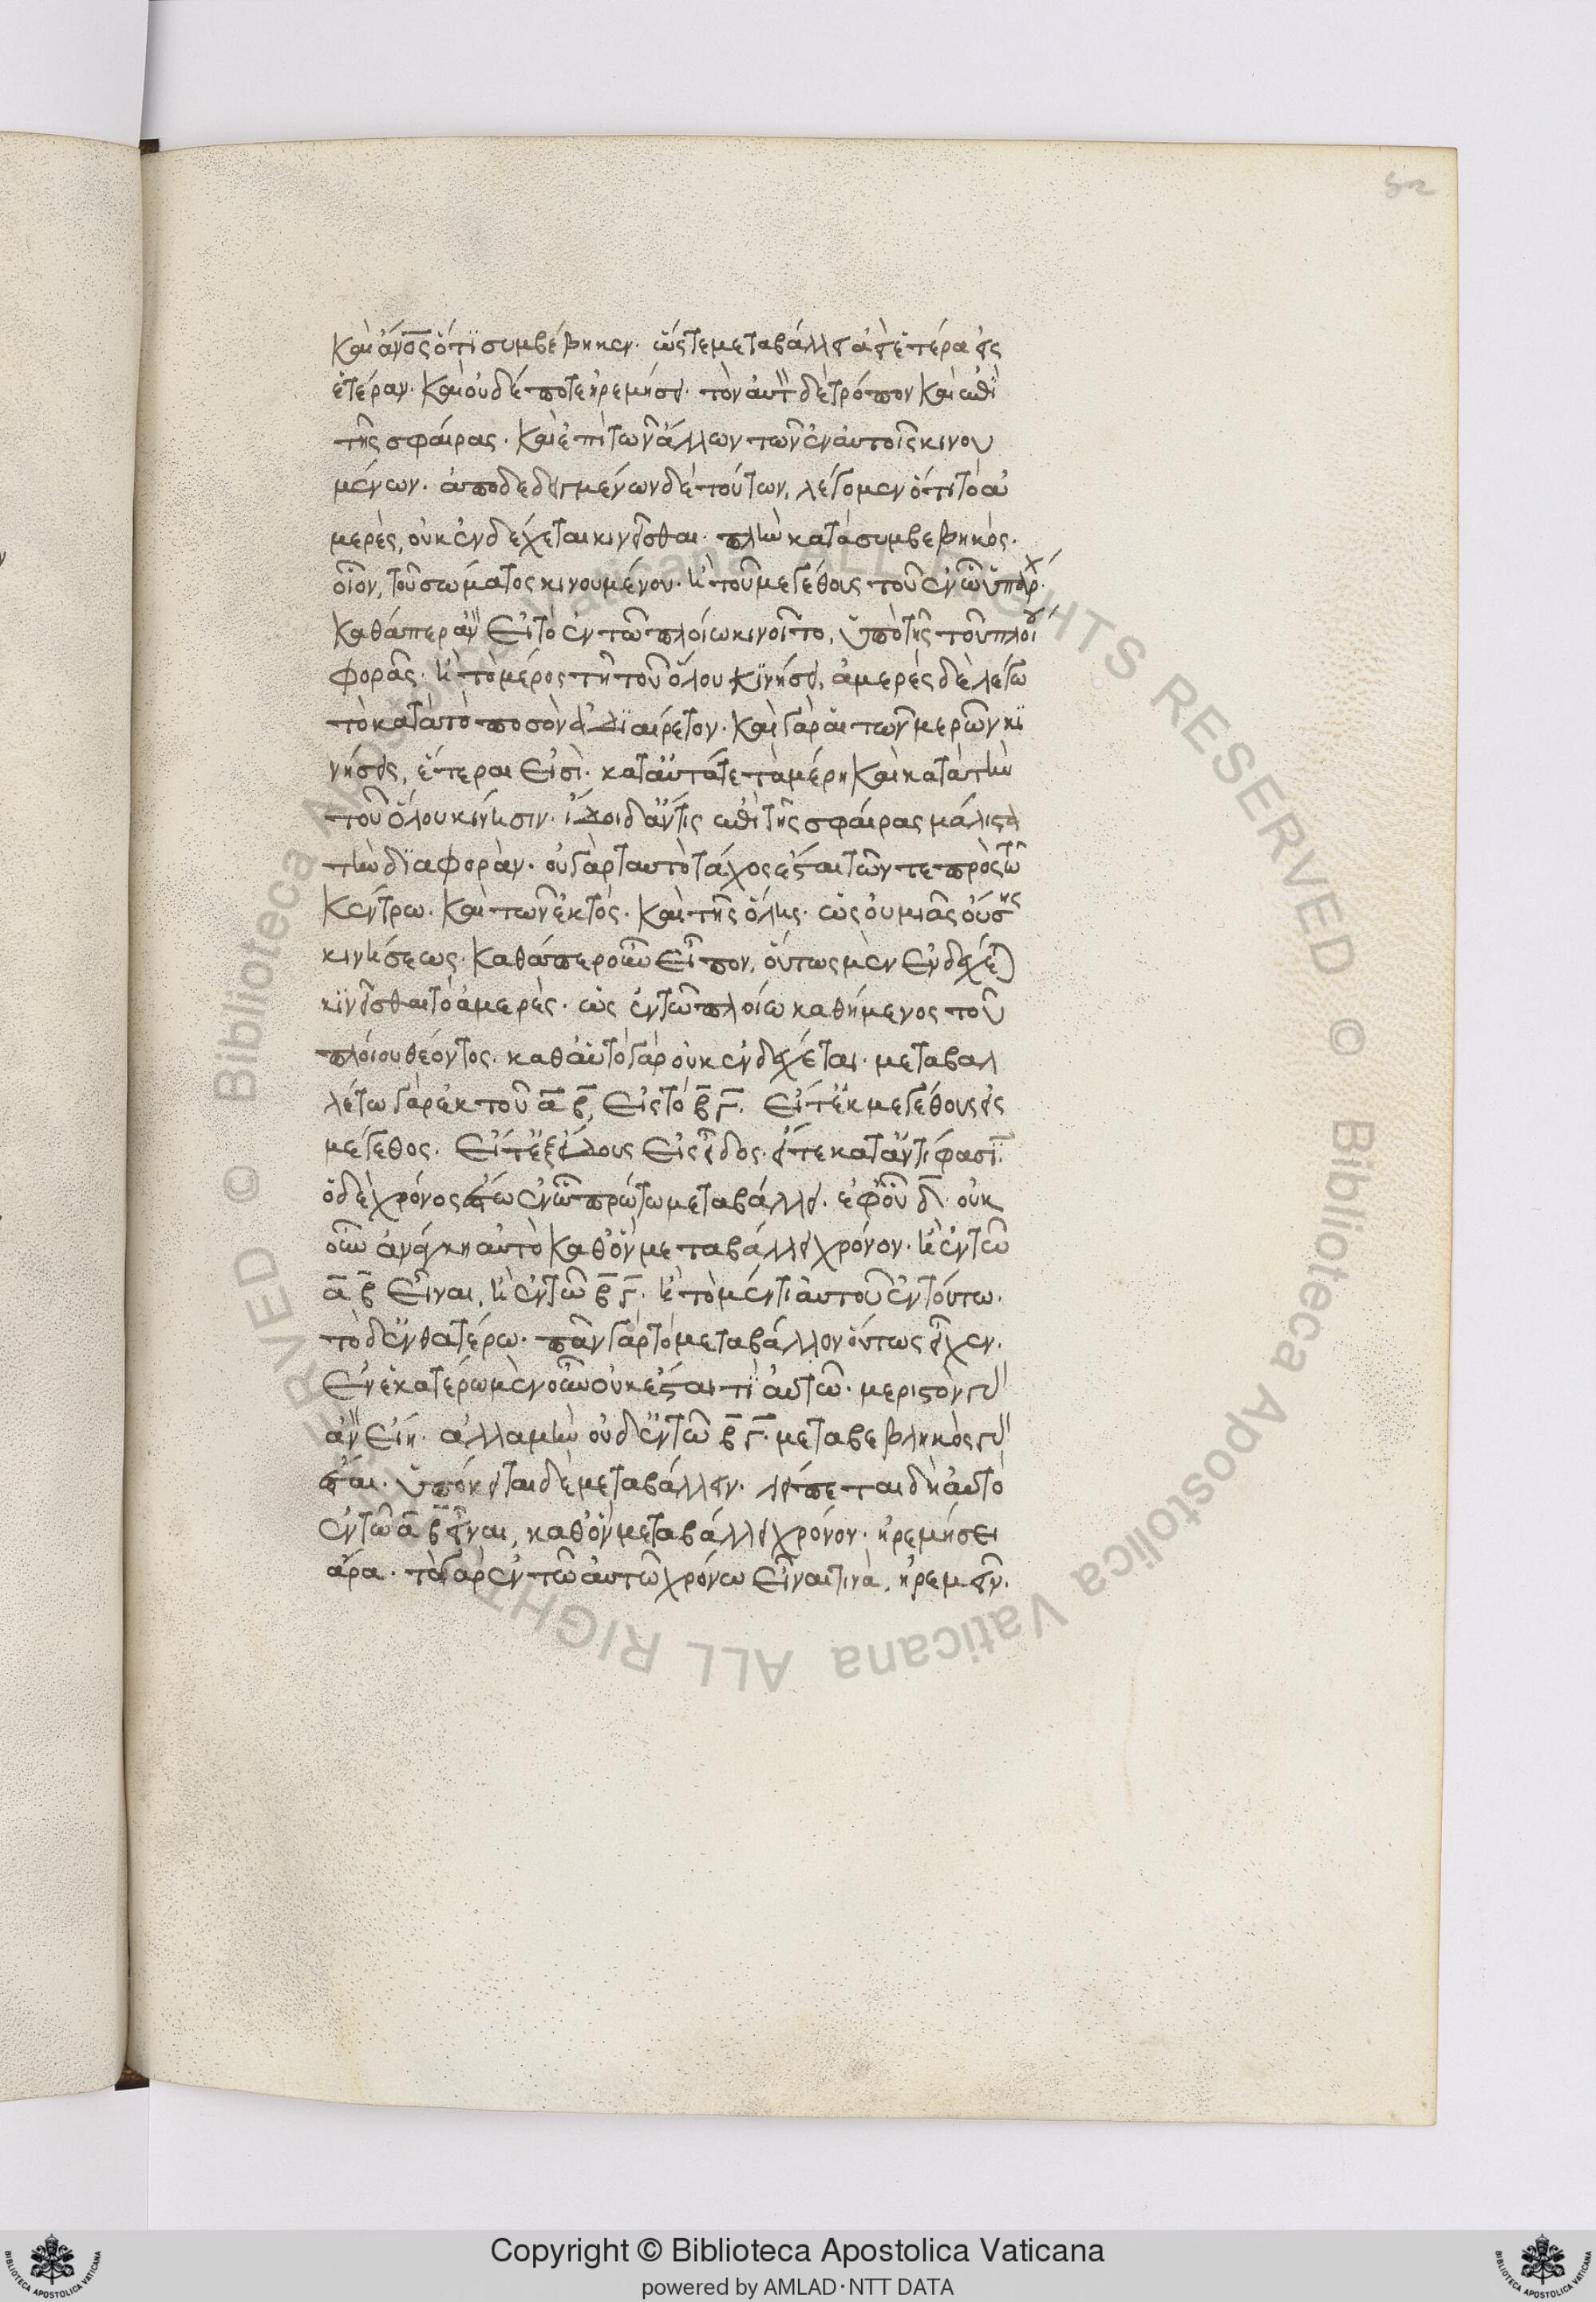 52
καὶ ἄνος ὅτι συμβέβηκεν· ὥστε μεταβάλλει ἀεὶ ἑτέρα εἰς
ἑτέραν· καὶ οὐδέποτε ἠρεμήσει· τὸν αὐτ δὲ τρόπον καὶ ἐπὶ
τῆς σφαίρας· καὶ ἐπὶ τῶν ἄλλων τῶν ἐν αὑτοῖς κινου
μένων· ἀποδεδειγμένων δὲ τούτων, λέγομεν ὅτι τὸ ἀ
μερὲς, οὐκ ἐνδέχεται κινεῖσθαι· πλὴν κατὰ συμβεβηκός·
οἷον, τοῦ σώματος κινουμένου· κ τοῦ μεγέθους τοῦ ἐν ᾧ ὑπάρχ·
καθάπερ ἂν εἰ τὸ ἐν τῶ πλοίω κινοῖτο, ὑπὸ τῆς τοῦ πλοίου
φορᾶς· κ τὸ μέρος τῆ τοῦ ὅλου κινήσει, ἀμερὲς δὲ λέγω
τὸ κατὰ τὸ ποσὸν ἀδιαίρετον· καὶ γὰρ αἱ τῶν μερῶν κι
νήσεις, ἕτεραι εἰσὶ· κατ' αὐτά τε τὰ μέρη καὶ κατὰ τὴν
τοῦ ὅλου κίνησιν· ἴδοι δ' ἄν τις ἐπὶ τῆς σφαίρας μάλιστα
τὴν διαφοράν· οὐ γὰρ ταυτὸ τάχος ἐσται τῶν τε πρὸς τῶ
κέντρω· καὶ τῶν ἐκτός· καὶ τῆς ὅλης· ὡς οὐ μιᾶς οὔσης
κινήσεως· καθάπερ οὖν εἴπον, οὕτως μὲν ἐνδέχεται
κινεῖσθαι τὸ ἀμερὲς· ὡς ἐν τῶ πλοίω καθήμενος τοῦ
πλοίου θέοντος· καθ' αὑτὸ γὰρ οὐκ ἐνδέχεται· μεταβαλ
λέτω γὰρ ἐκ τοῦ α β, εἰς τὸ β γ. εἴτ' ἐκ μεγέθους εἰς
μέγεθος· εἴτ' ἐξ εἴδους εἰς εἶδος· εἴτε κατ' ἀντίφασι·
ὁ δὲ χρόνος ἔστω ἐν ὧ πρώτω μεταβάλλει· ἐφ' οὗ δ· οὐκ
οῦν ἀνάγκη αὐτὸ καθ' ὃν μεταβάλλει χρόνον· κ ἐν τῶ
α β εἶναι, κ ἐν τῶ β γ. κ τὸ μέν τι αὐτοῦ ἐν τούτω·
τὸ δ' ἐν θατέρω· πᾶν γὰρ τὸ μεταβάλλον οὕτως εἶχεν·
ἐν ἑκατέρω μὲν οὖν οὐκ ἔσται τι αὐτῶ· μεριστὸν γὰρ
ἂν εἴη· ἀλλαμὴν οὐδ' ἐν τῶ β γ. μεταβεβληκὸς γὰρ
ἔσται· ὑπόκειται δὲ μεταβάλλειν· λείπεται δὴ αὐτὸ
ἐν τῶ α β εἶναι, καθ' ὃν μεταβάλλει χρόνον· ἠρεμήσει
ἄρα· τὸ γὰρ ἐν τῶ αὐτῶ χρόνω εἶναι τινὰ, ἠρεμεῖν·
© Biblioteca Apostolica Vaticana ALL RIGHTS RESERVED © Biblioteca Apostolica Vaticana ALL RIGHTS RESERVED
Copyright © Biblioteca Apostolica Vaticana
powered by AMLAD·NTT DATA